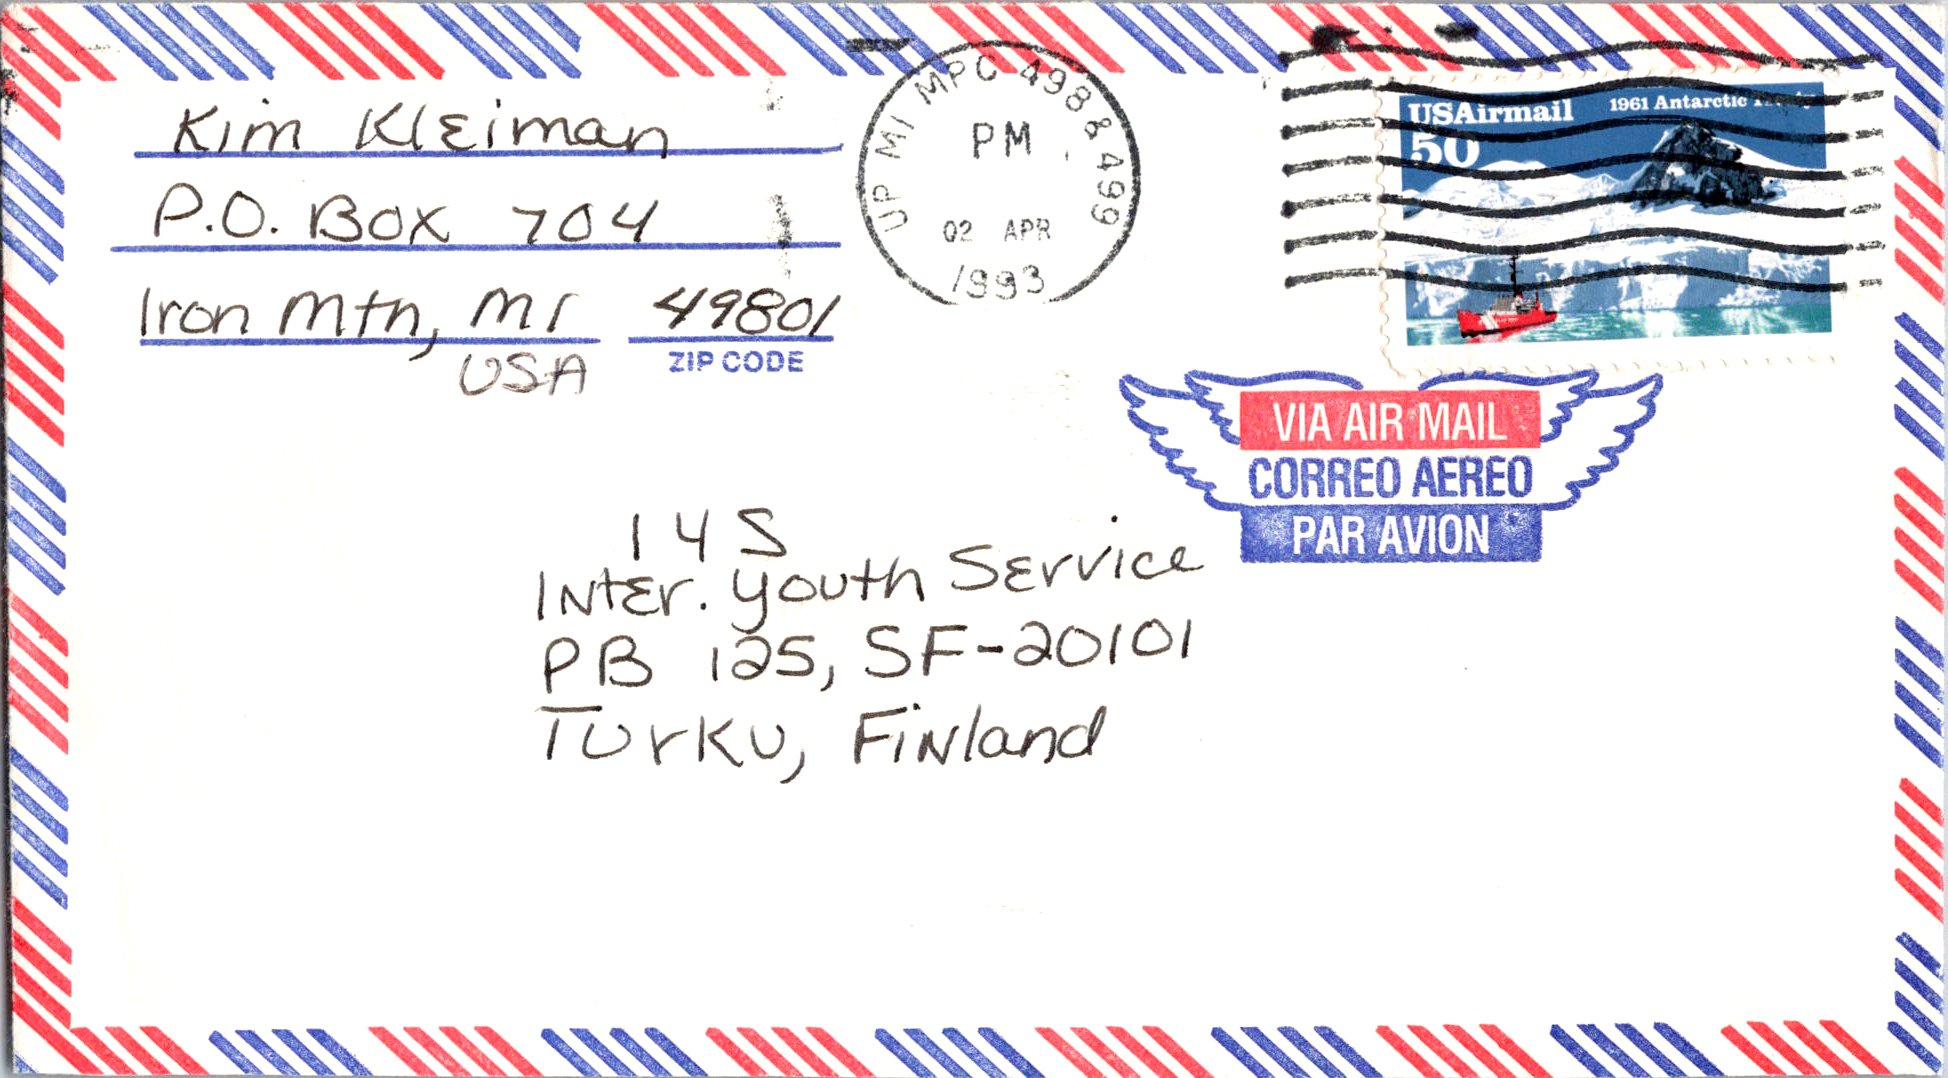 Kim Kleiman
P.O. Box 704
Iron Mtn, MI 49801
ZIP CODE
USA
UP MI MPC 498 & 499
PM
02 APR
1993
USAirmail 1961 Antarctic
50
VIA AIR MAIL
CORREO AEREO
PAR AVION
I Y S
Inter. Youth Service
PB 125, SF-20101
Turku, Finland